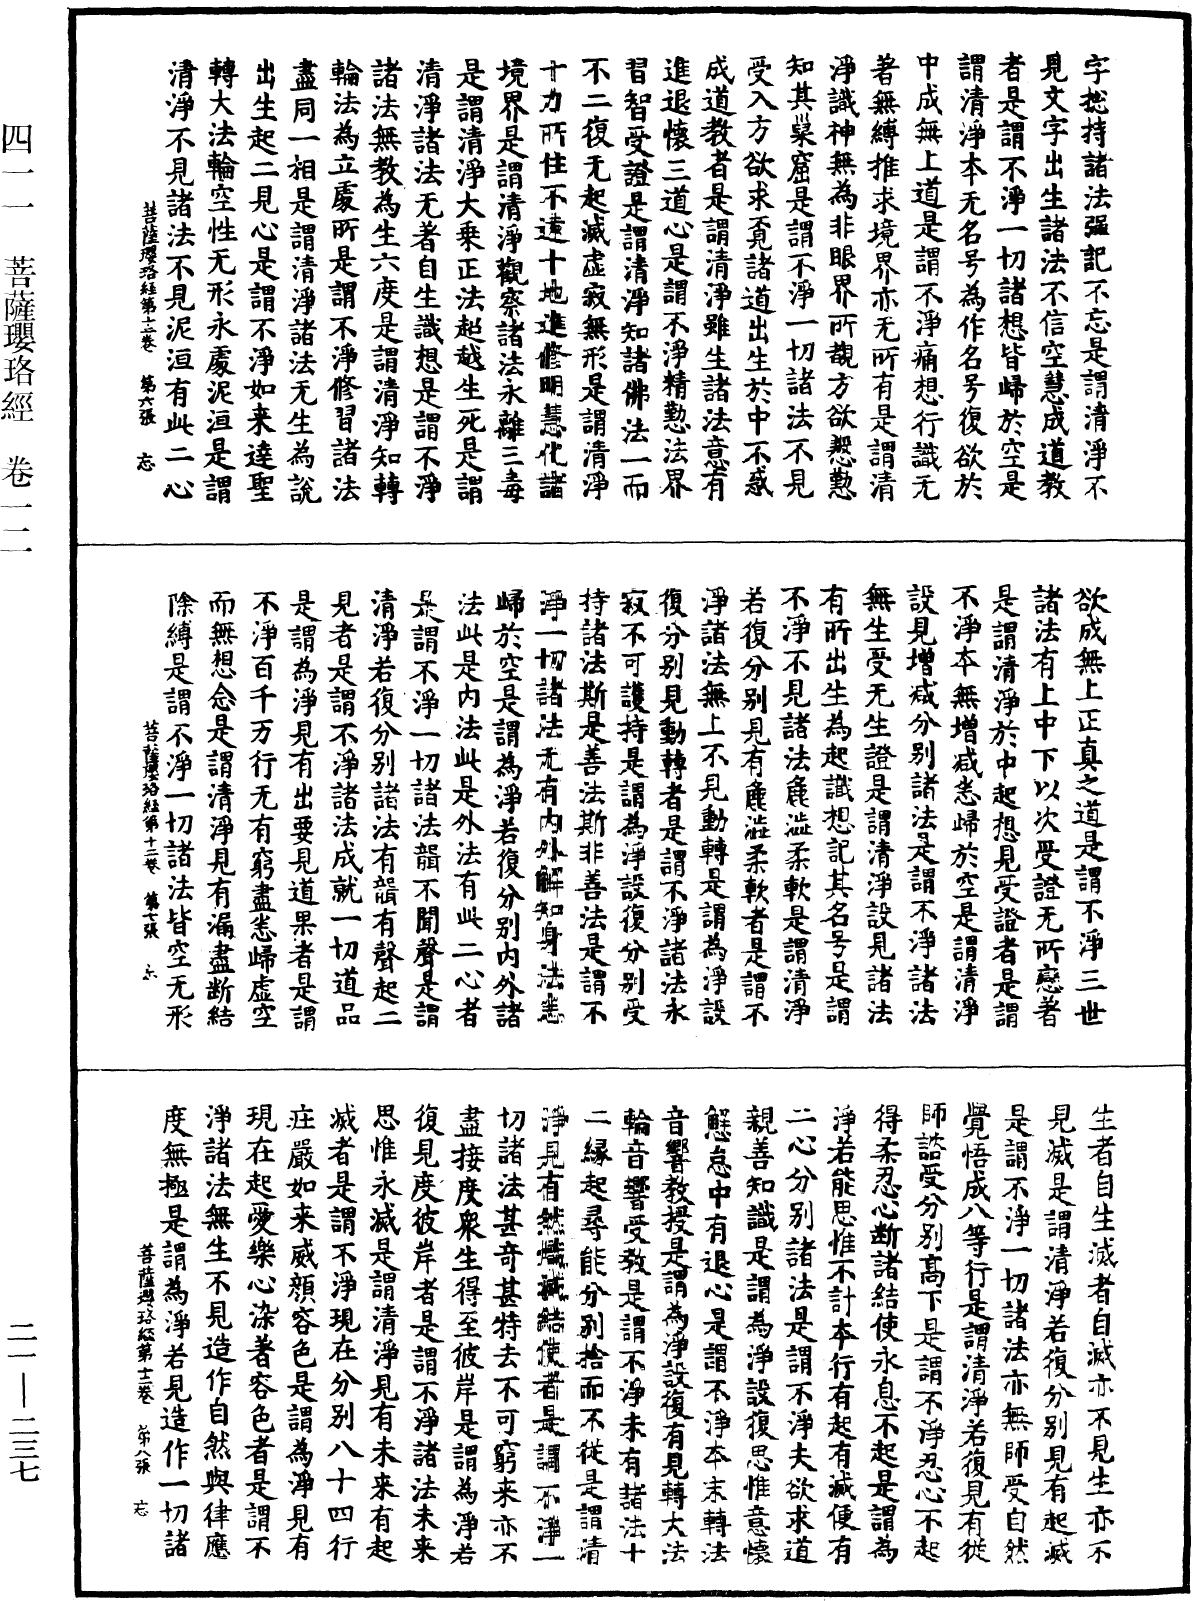 字捴持諸法强記不忘是謂清淨不
見文字出生諸法不信空慧成道教
者是謂不淨一切諸想皆歸於空是
謂清淨本无名号為作名号復欲於
中成無上道是謂不淨痛想行識无
著無縛推求境界亦无所有是謂清
淨識神無為非眼界所覩方欲懃懃
知其巢窟是謂不淨一切諸法不見
受入方欲求覔諸道出生於中不惑
成道教者是謂清淨雖生諸法意有
進退懷三道心是謂不淨精懃法界
習智受證是謂清淨知諸佛法一而
不二復无起滅虛寂無形是謂清淨
十力所住不違十地進修明慧化諸
境界是謂清淨觀察諸法永離三毒
是謂清淨大乗正法超越生死是謂
清淨諸法无著自生識想是謂不淨
諸法無教為生六度是謂清淨知轉
輪法為立處所是謂不淨修習諸法
盡同一相是謂清淨諸法无生為說
出生起二見心是謂不淨如来達聖
轉大法輪空性无形永處泥洹是謂
清淨不見諸法不見泥洹有此二心
菩薩瓔珞經第十二卷 第六張 忘
欲成無上正真之道是謂不淨三世
諸法有上中下以次受證无所戀著
是謂清淨於中起想見受證者是謂
不淨本無增减悉歸於空是謂清淨
設見增减分别諸法是謂不淨諸法
無生受无生證是謂清淨設見諸法
有所出生為起識想記其名号是謂
不淨不見諸法麁澁柔軟是謂清淨
若復分别見有麁澁柔軟者是謂不
淨諸法無上不見動轉是謂為淨設
復分别見動轉者是謂不淨諸法永
寂不可護持是謂為淨設復分别受
持諸法斯是善法斯非善法是謂不
淨一切諸法无有内外解知身法悉
歸於空是謂為淨若復分别内外諸
法此是内法此是外法有此二心者
是謂不淨一切諸法韻不聞聲是謂
清淨若復分别諸法有韻有聲起二
見者是謂不淨諸法成就一切道品
是謂為淨見有出要見道果者是謂
不淨百千万行无有窮盡悉歸虛空
而無想念是謂清淨見有漏盡断結
除縛是謂不淨一切諸法皆空无形
菩薩瓔珞經第十二卷 第七張
生者自生滅者自滅亦不見生亦不
見滅是謂清淨若復分别見有起滅
是謂不淨一切諸法亦無師受自然
覺悟成八等行是謂清淨若復見有從
師諮受分别髙下是謂不淨忍心不起
得柔忍心断諸結使永息不起是謂為
淨若能思惟不計本行有起有滅便有
二心分别諸法是謂不淨夫欲求道
親善知識是謂為淨設復思惟意懷
懈怠中有退心是謂不淨本末轉法
音響教授是謂為淨設復有見轉大法
輪音響受教是謂不淨未有諸法十
二緣起尋能分别捨而不從是謂清
淨見有然熾滅結使者是謂不淨一
切諸法甚竒甚特去不可窮来亦不
盡接度衆生得至彼岸是謂為淨若
復見度彼岸者是謂不淨諸法未来
思惟永滅是謂清淨見有未来有起
滅者是謂不淨現在分别八十四行
莊嚴如来威顏容色是謂為淨見有
現在起愛樂心染著容色者是謂不
淨諸法無生不見造作自然與律應
度無極是謂為淨若見造作一切諸
菩薩瓔珞經第十二卷 第八張 忘
四一一 菩薩瓔珞經 卷一二
二一—二三七